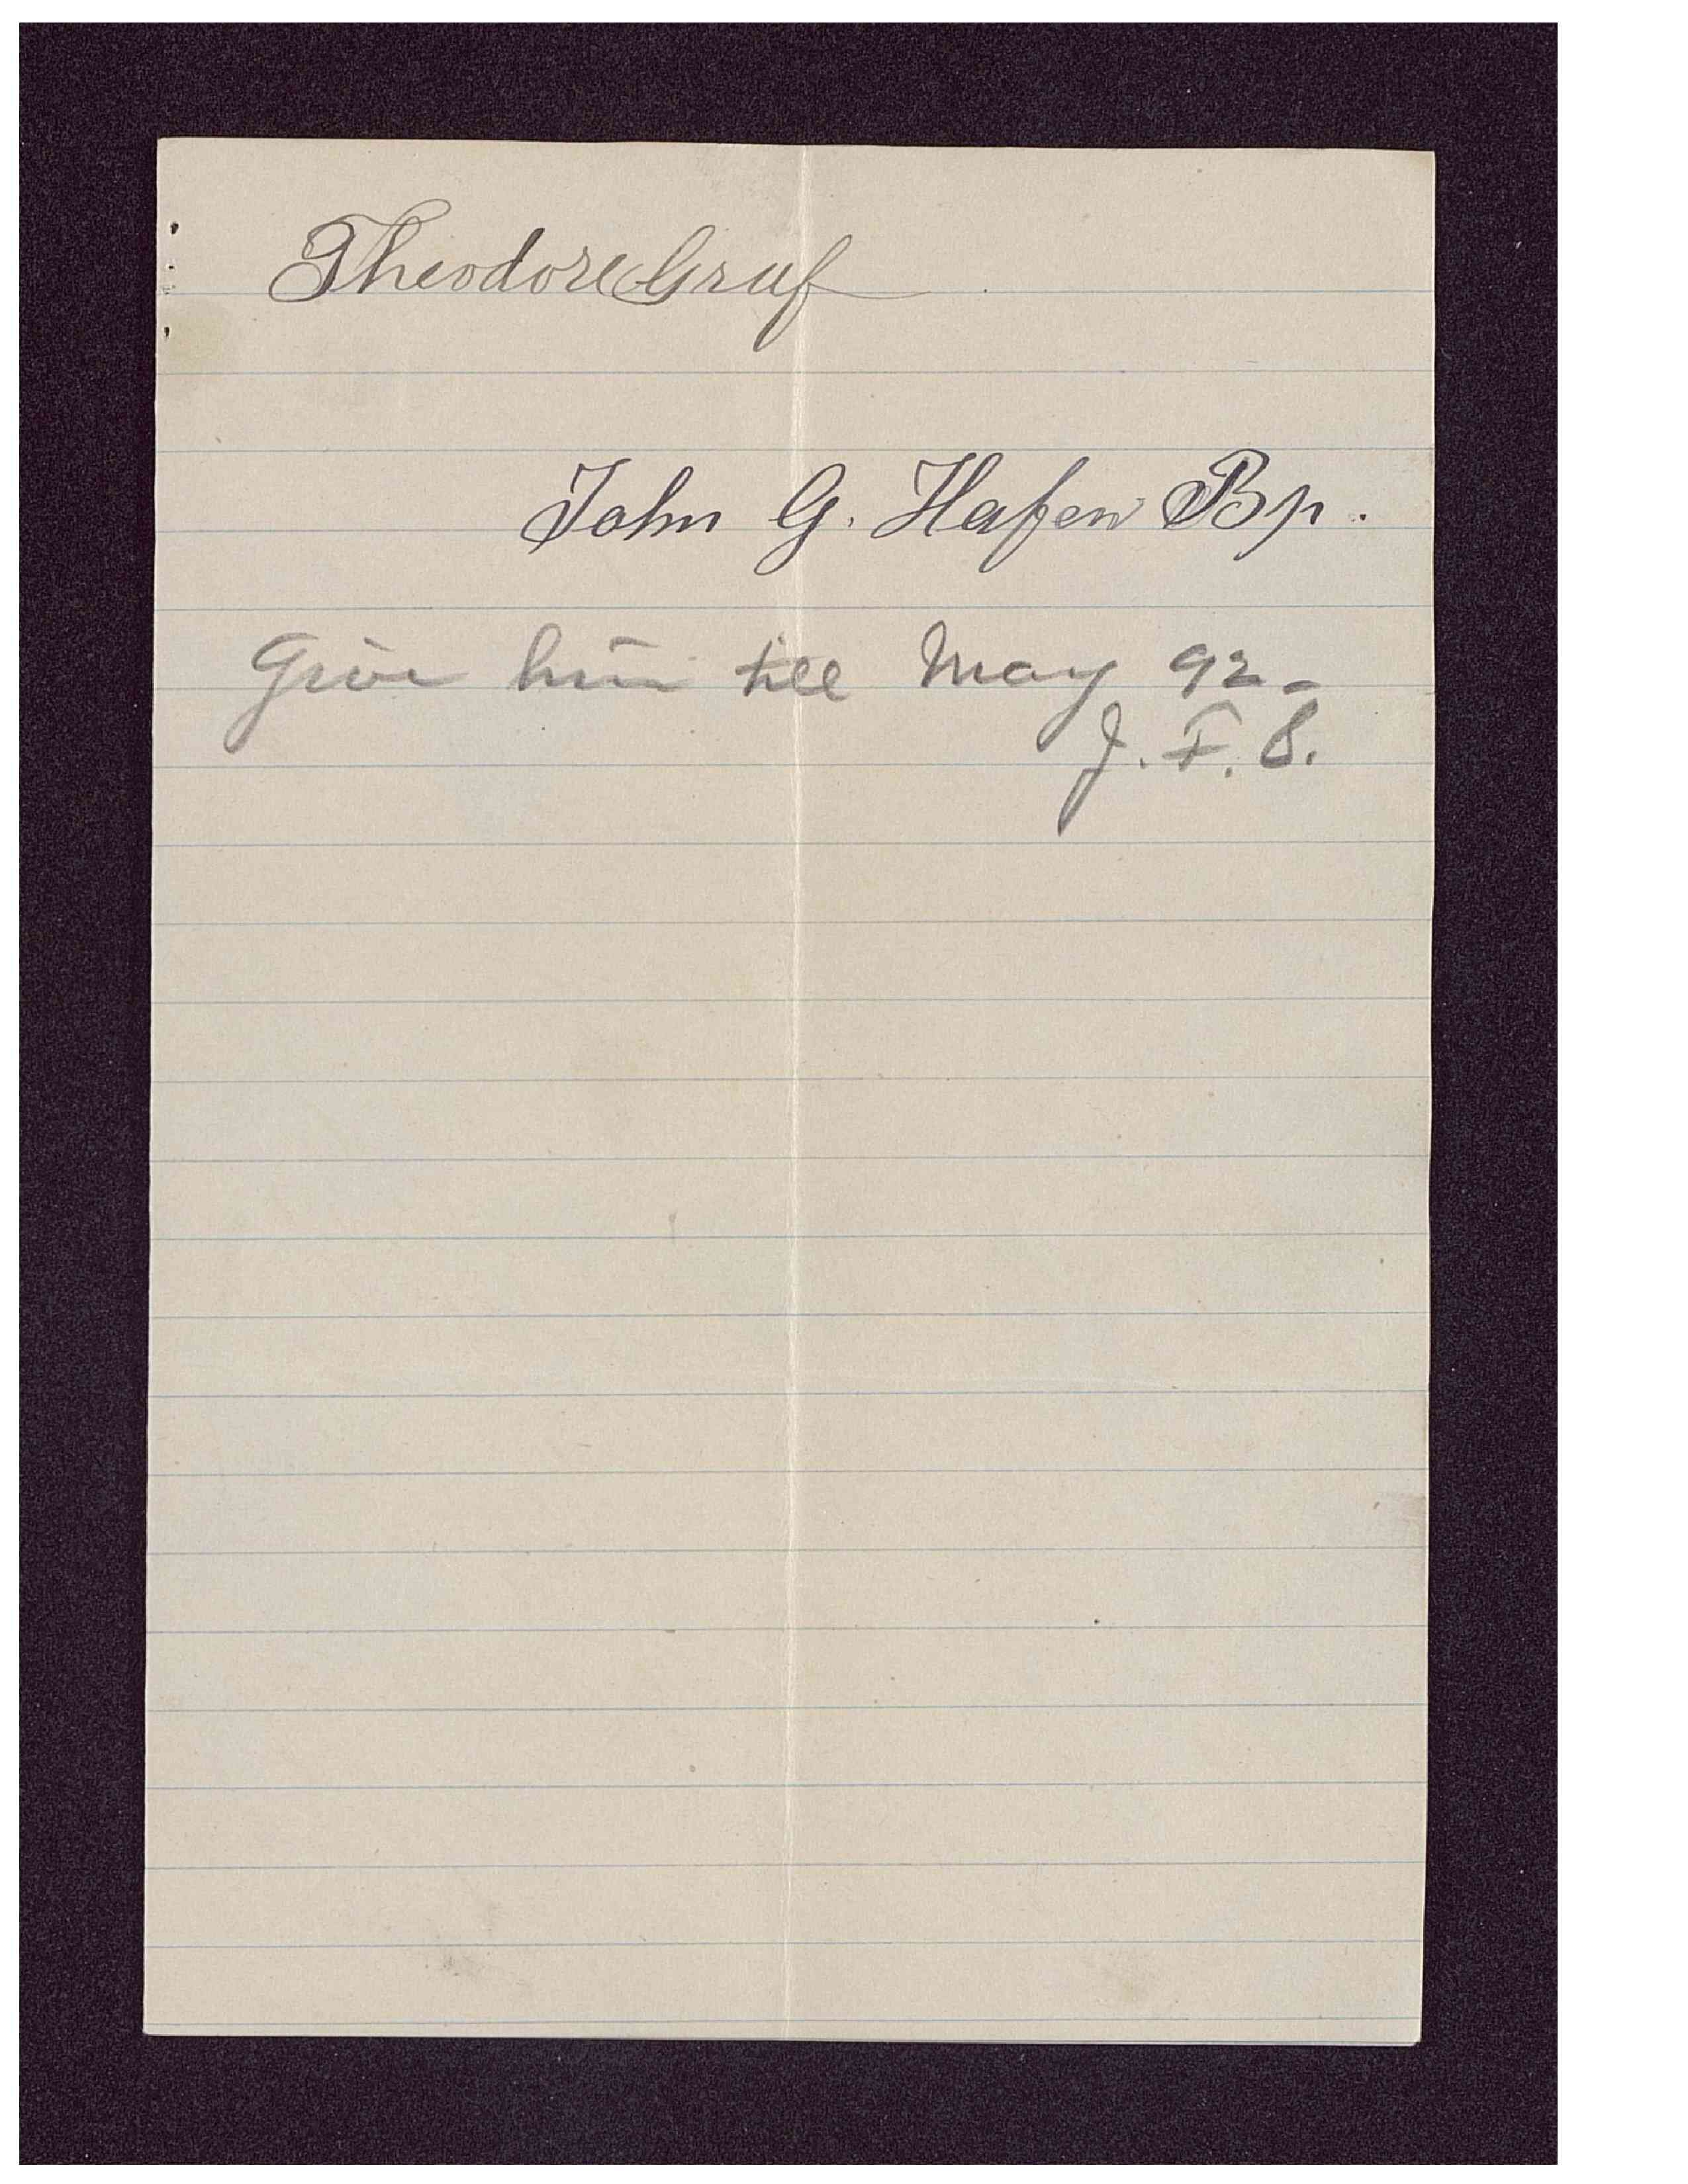 Theodore Graf
John G. Hafen Bp.
Give him till May 92-
J. F. S.